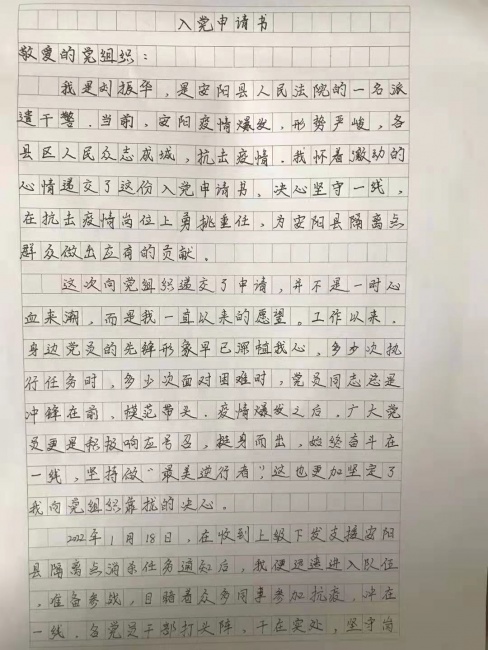 入党申请书
敬爱的党组织：
我是刘振华，是安阳县人民法院的一名派
遣干警。当前，安阳疫情爆发，形势严峻，各
县区人民众志成城，抗击疫情。我怀着激动的
心情递交了这份入党申请书，决心坚守一线，
在抗击疫情岗位上勇挑重任，为安阳县隔离点
群众做出应有的贡献。
这次向党组织递交了申请，并不是一时心
血来潮，而是我一直以来的愿望。工作以来，
身边党员的先锋形象早已深植我心，多少次执
行任务时，多少次面对困难时，党员同志总是
冲锋在前、模范带头。疫情爆发之后，广大党
员更是积极响应号召，挺身而出，始终奋斗在
一线，坚持做“最美逆行者”，这也更加坚定了
我向党组织靠拢的决心。
2022年1月18日，在收到上级下发支援安阳
县隔离点消杀任务通知后，我便迅速进入队伍
，准备参战，目睹着众多同事参加抗疫，冲在
一线，各党员干部打头阵，干在实处，坚守岗